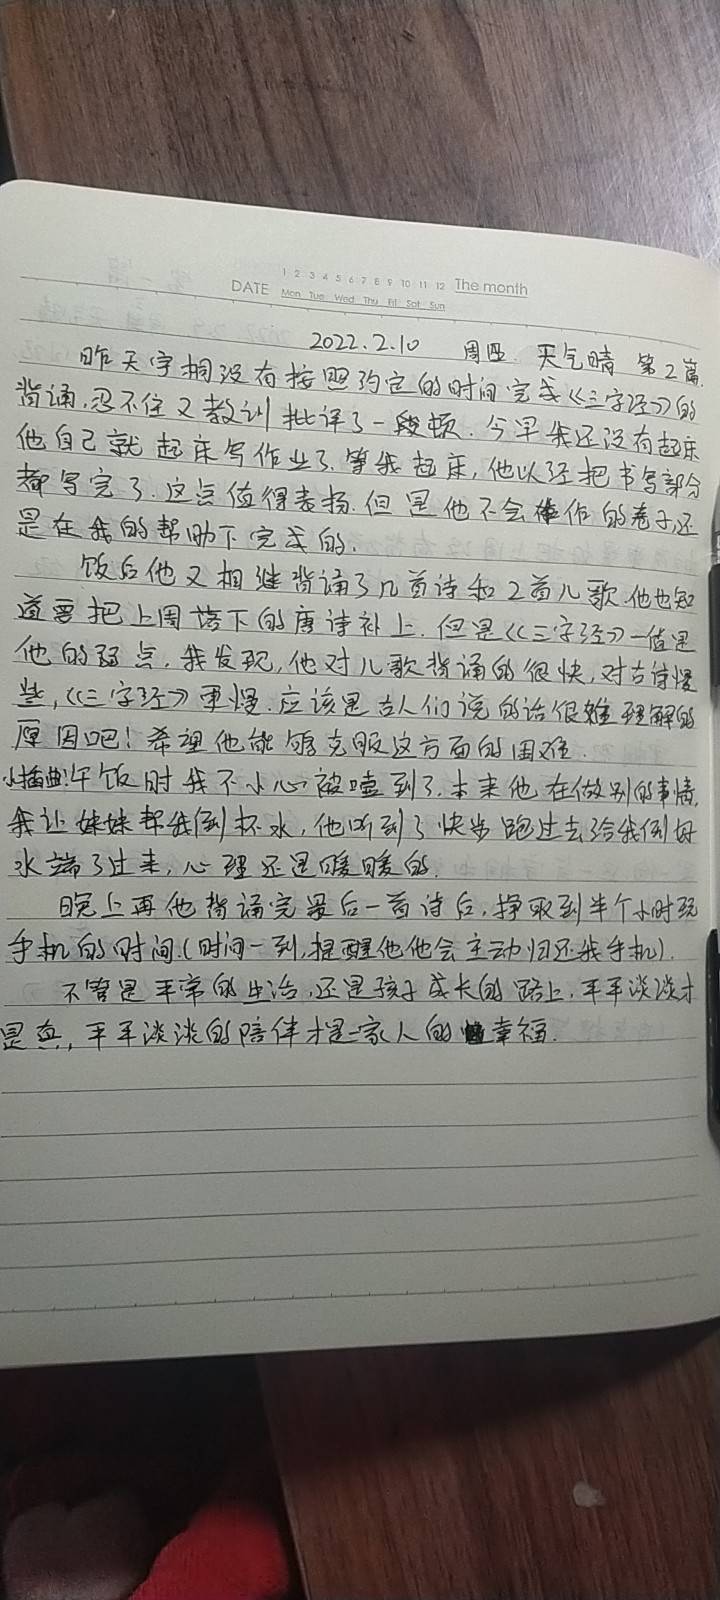 1 2 3 4 5 6 7 8 9 10 11 12 The month
DATE Mon Tue Wed Thu Fri Sat Sun
2022.2.10 周四. 天气晴 第2篇.
昨天宇桐没有按照约定的时间完成《三字经》的
背诵,忍不住又教训批评了一段顿. 今早我还没有起床
他自己就起床写作业了.等我起床,他以经把书写部分
都写完了.这点值得表扬.但是他不会作的卷子还
是在我的帮助下完成的.
饭后他又相继背诵了几首诗和2首儿歌.他也知
道要把上周落下的唐诗补上.但是《三字经》一值是
他的弱点,我发现,他对儿歌背诵的很快,对古诗慢
些,《三字经》更慢.应该是古人们说的话很难理解的
原因吧!希望他能够克服这方面的困难.
小插曲!午饭时我不小心被噎到了.本来他在做别的事情,
我让妹妹帮我倒杯水,他听到了快步跑过去给我倒好
水端了过来,心理还是暖暖的.
晚上再他背诵完最后一首诗后,挣取到半个小时玩
手机的时间.(时间一到,提醒他他会主动归还我手机).
不管是平常的生活,还是孩子成长的路上,平平淡淡才
是真,平平淡淡的陪伴才是一家人的幸福.